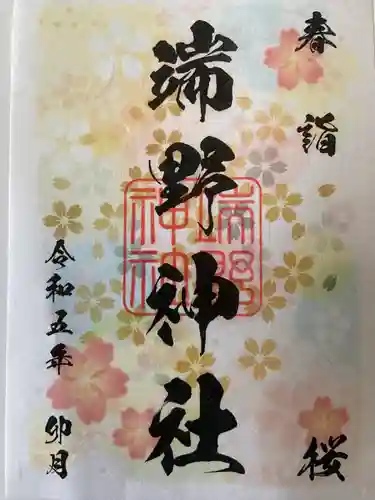 春詣 桜
端野神社
端野神社
令和五年 卯月